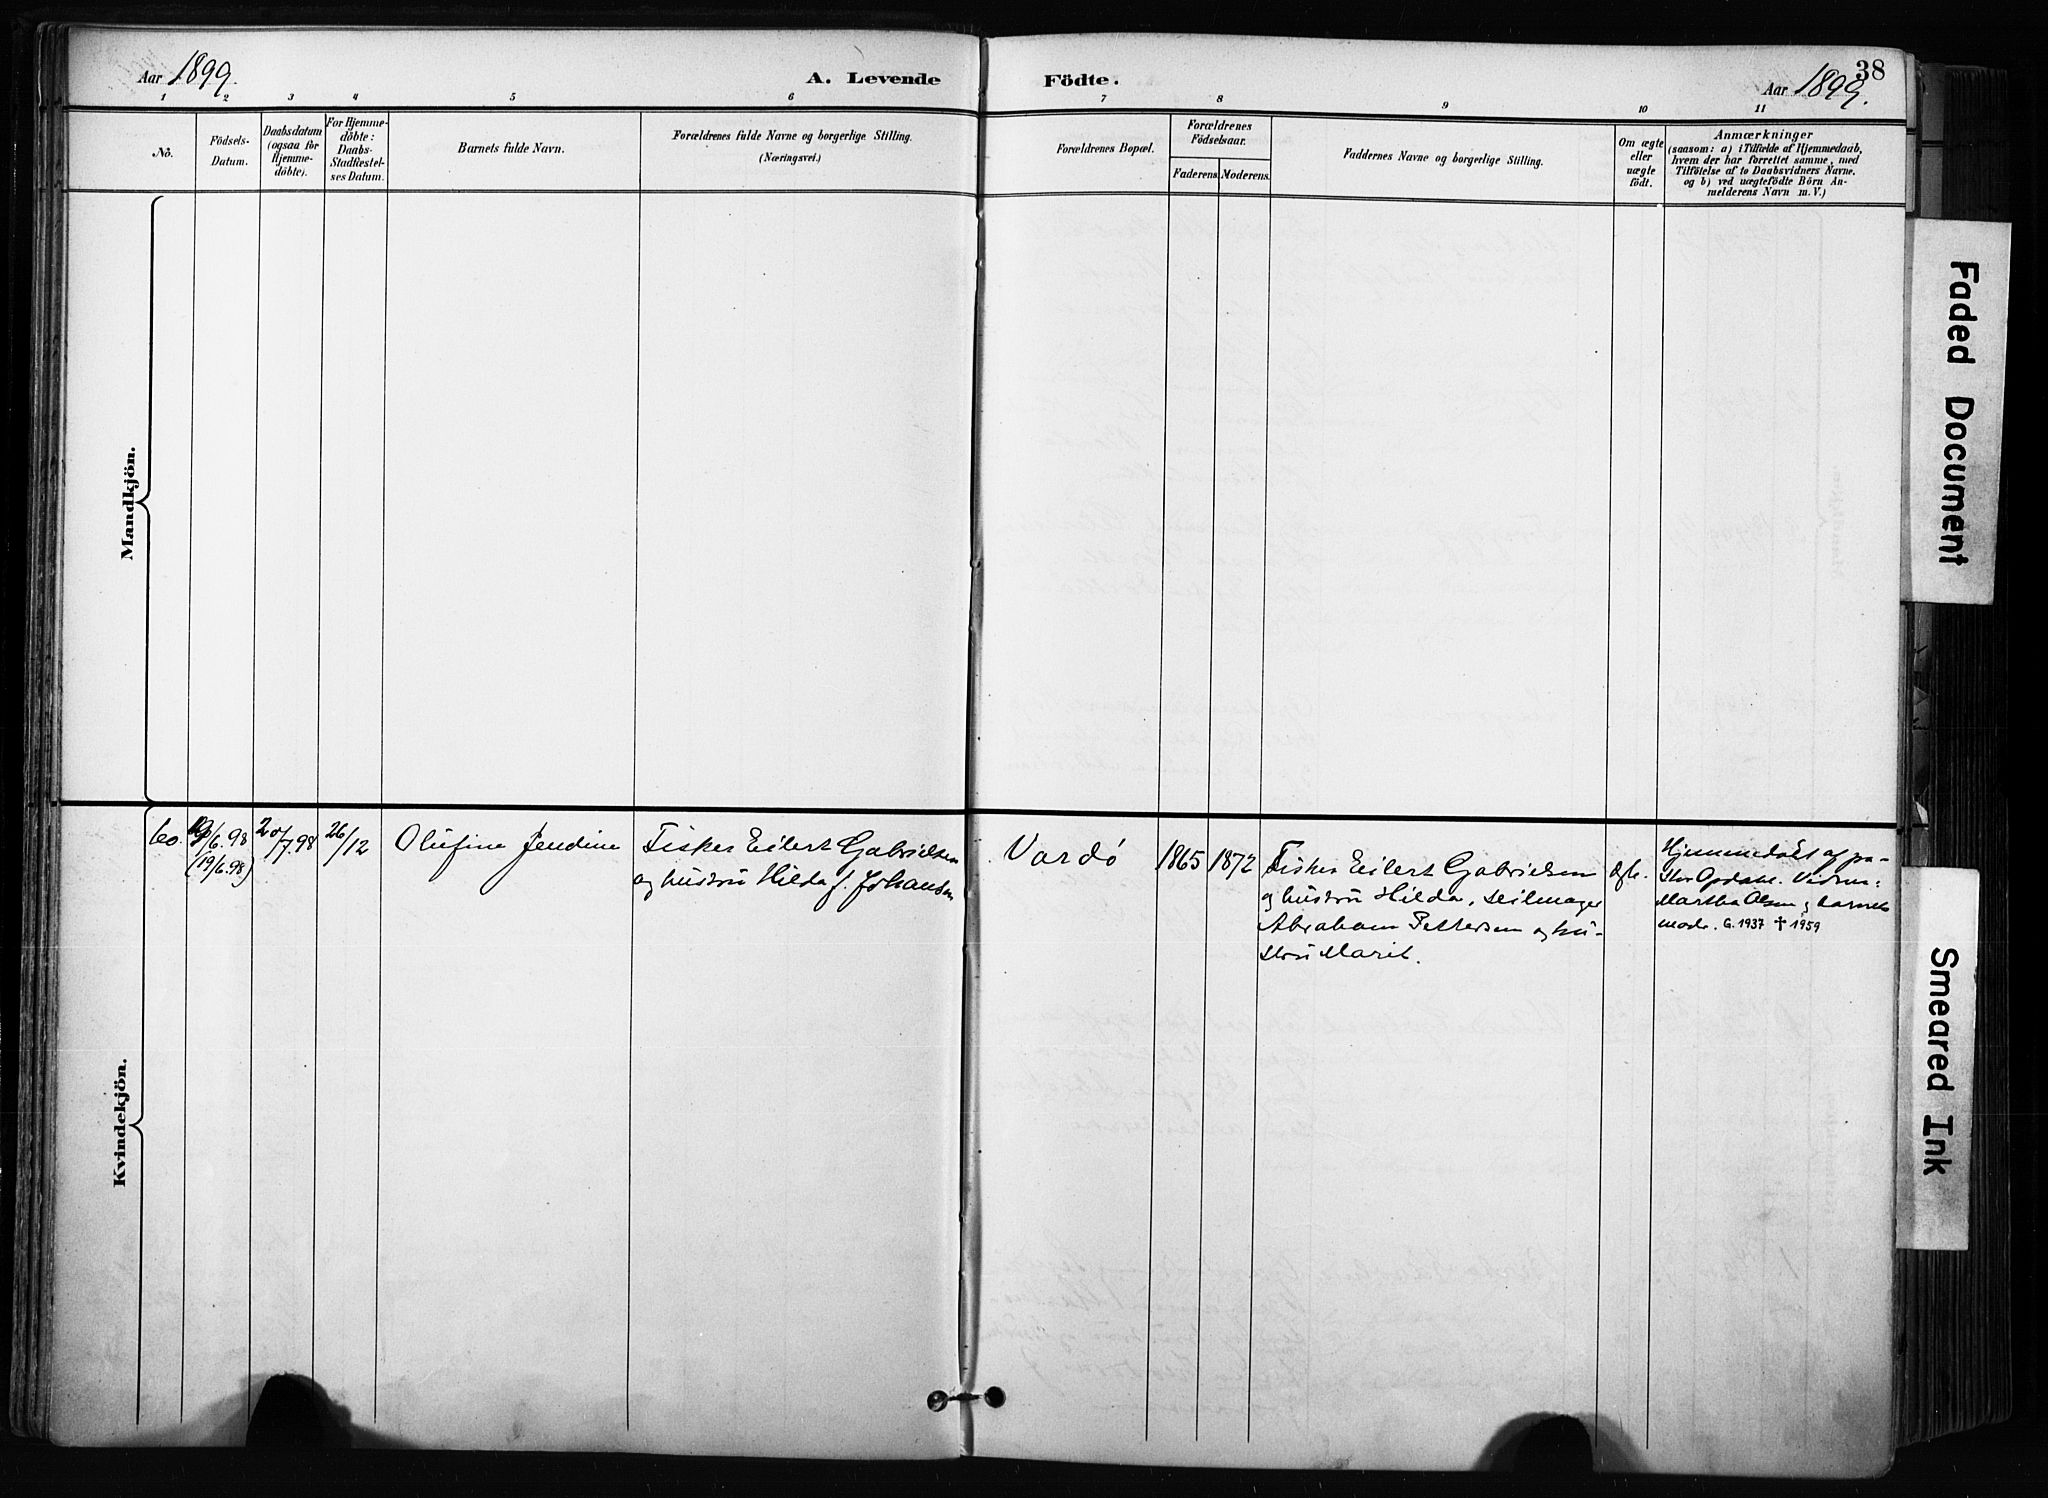 Aar 1899.
A. Levende
Födte.
Aar 1899.
38
1 2 3 4 5 6
7 8 9 10 11
No.
Födsels-
Datum.
Daabsdatum
(ogsaa for
Hjemme-
döbte).
For Hjemme-
döbte:
Daabs-
Stadfestel-
ses Datum.
Barnets fulde Navn.
Forældrenes fulde Navne og borgerlige Stilling.
(Næringsvei.)
Forældrenes Bopæl.
Forældrenes
Födselsaar.
Faderens.
Moderens.
Faddernes Navne og borgerlige Stilling.
Om ægte
eller
uægte
födt.
Anmærkninger
(saasom: a) i Tilfælde af Hjemmedaab,
hvem der har forrettet samme, med
Tilföielse af to Daabsvidners Navne.
og b) ved uægtefödte Börn An-
melderens Navn m. V.)
Mandkjön.
Kvindekjön.
60.
19/6.98
(19/6.98)
20/7.98
26/12
Olufine Jendine
Fisker Eilert Gabrielsen
og hustru Hilda f. Johansen
Vardö
1865
1872
Fisker Eilert Gabrielsen
og hustru Hilda, Seilmager
Abraham Pettersen og hu-
stru Marit.
Ægte.
Hjemmedöbt af pa-
stor Opdahl. Vidner:
Martha Olsen og barnets
moder. G. 1937 ✝ 1959
Faded Document
Smeared Ink